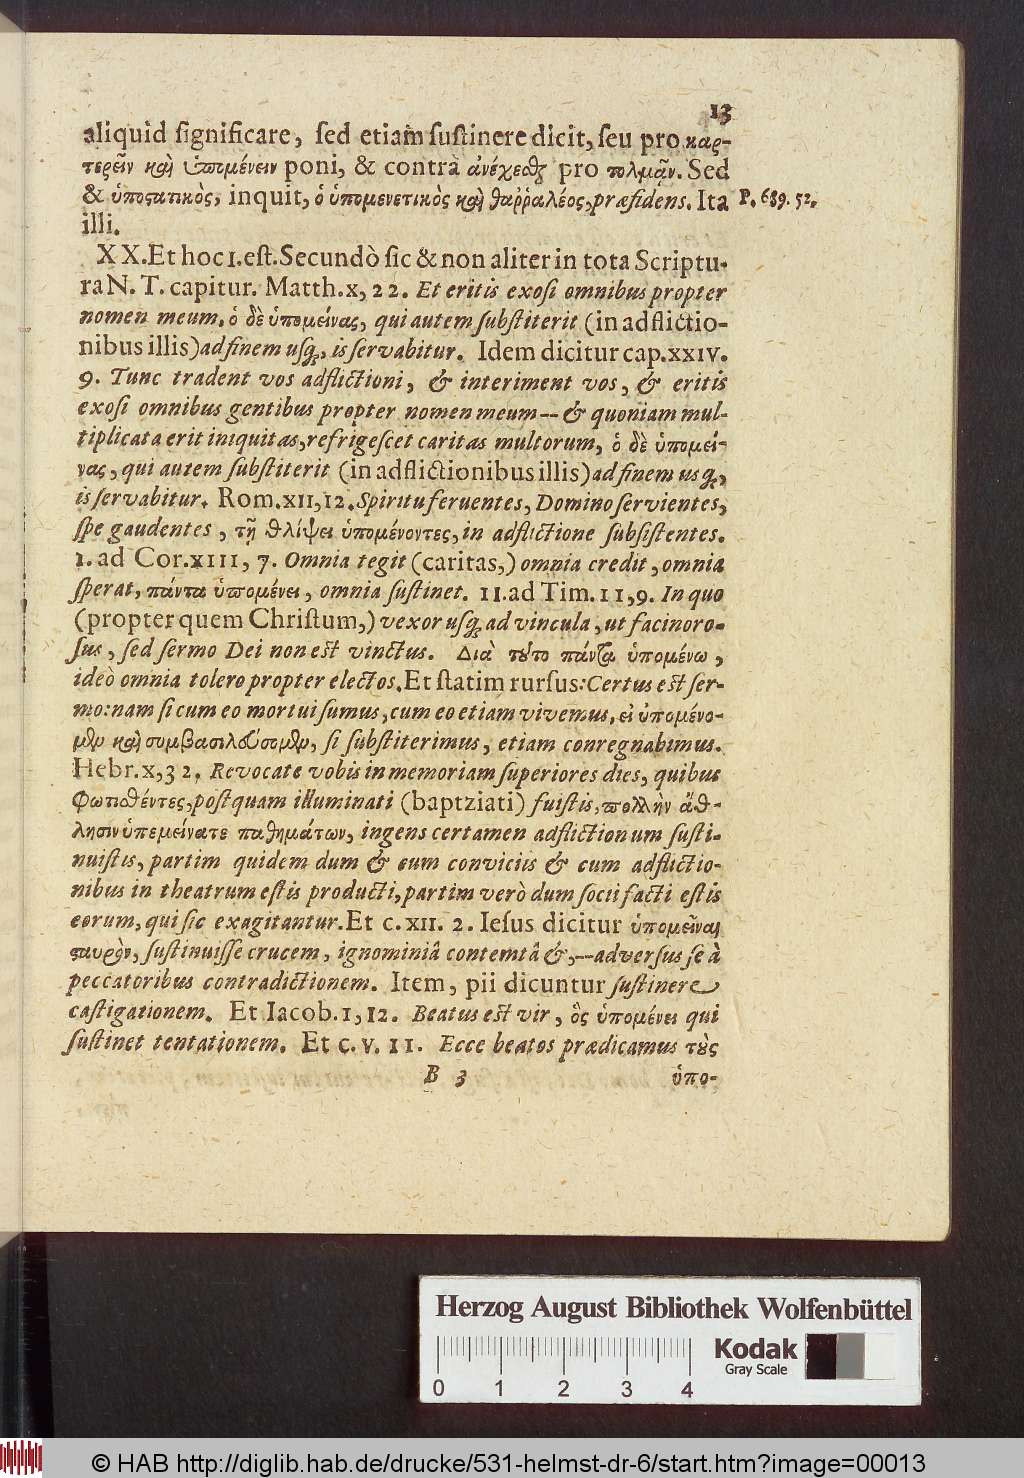 13
aliquid ſignificare, ſed etiam ſuſtinere dicit, ſeu pro καρ-
τερεῖν καὶ ὑπομένειν poni, & contrà ἀνέχεσθαι pro τολμᾶν. Sed
& ὑποστατικὸς, inquit, ὁ ὑπομενετικὸς καὶ θαῤῥαλέος, præfidens. Ita P. 689. 52.
illi.
XX. Et hoc 1. eſt. Secundò ſic & non aliter in tota Scriptu-
ra N. T. capitur. Matth. x, 22. Et eritis exoſi omnibus propter
nomen meum, ὁ δὲ ὑπομείνας, qui autem ſubſtiterit (in adflictio-
nibus illis) ad finem uſq, is ſervabitur. Idem dicitur cap. xxiv.
9. Tunc tradent vos adflictioni, & interiment vos, & eritis
exoſi omnibus gentibus propter nomen meum -- & quoniam mul-
tiplicata erit iniquitas, refrigeſcet caritas multorum, ὁ δὲ ὑπομεί-
νας, qui autem ſubſtiterit (in adflictionibus illis) ad finem usq,
is ſervabitur. Rom. xii, 12. Spiritu feruentes, Domino ſervientes,
ſpe gaudentes, τῇ θλίψει ὑπομένοντες, in adflictione ſubſiſtentes.
1. ad Cor. xiii, 7. Omnia tegit (caritas,) omnia credit, omnia
ſperat, πάντα ὑπομένει, omnia ſuſtinet. ii. ad Tim. 11, 9. In quo
(propter quem Chriſtum,) vexor uſq ad vincula, ut facinoro-
ſus, ſed ſermo Dei non eſt vinctus. Διὰ τοῦτο πάντα ὑπομένω,
ideò omnia tolero propter electos. Et ſtatim rurſus: Certus eſt ſer-
mo: nam ſi cum eo mortui ſumus, cum eo etiam vivemus, εἰ ὑπομένο-
μεν καὶ συμβασιλεύσομεν, ſi ſubſtiterimus, etiam conregnabimus.
Hebr. x, 32. Revocate vobis in memoriam ſuperiores dies, quibus
φωτισθέντες, poſtquam illuminati (baptziati) fuiſtis, πολλὴν ἄθ-
λησιν ὑπεμείνατε παθημάτων, ingens certamen adflictionum ſuſti-
nuiſtis, partim quidem dum & cum conviciis & cum adflictio-
nibus in theatrum eſtis producti, partim verò dum ſocii facti eſtis
eorum, qui ſic exagitantur. Et c. xii. 2. Ieſus dicitur ὑπομεῖναι
σταυρὸν, ſuſtinuiſſe crucem, ignominiâ contemtâ &, -- adverſus ſe à
peccatoribus contradictionem. Item, pii dicuntur ſuſtinere
caſtigationem. Et Iacob. 1, 12. Beatus eſt vir, ὃς ὑπομένει qui
ſuſtinet tentationem. Et c. v. 11. Ecce beatos prædicamus τοὺς
B 3 ὑπο-
Herzog August Bibliothek Wolfenbüttel
Kodak
Gray Scale
0 1 2 3 4
© HAB http://diglib.hab.de/drucke/531-helmst-dr-6/start.htm?image=00013